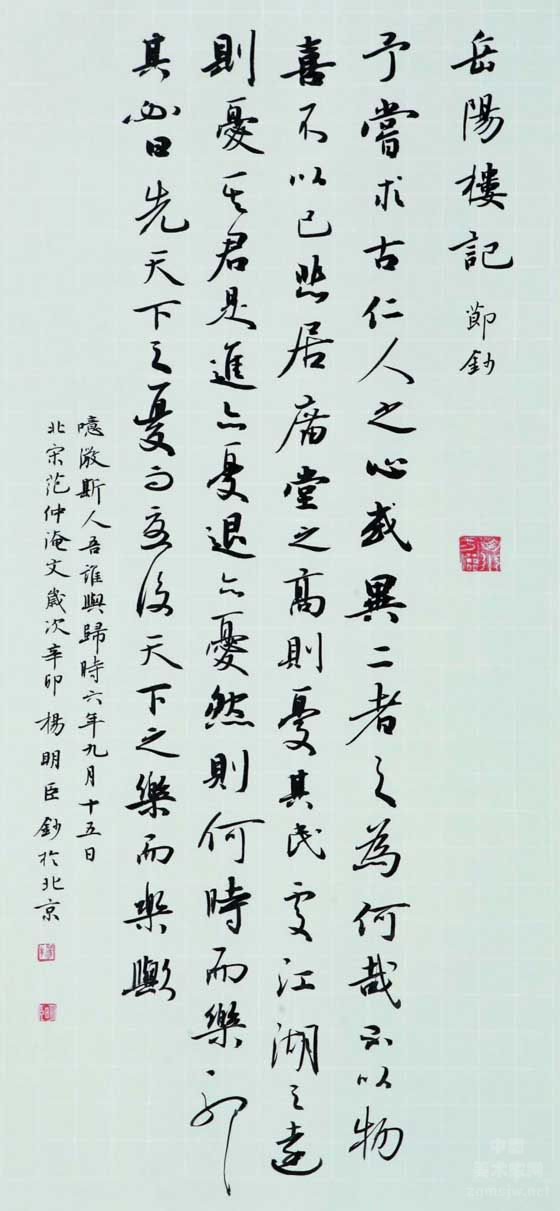 岳陽樓記 節鈔
予嘗求古仁人之心或異二者之為何哉不以物
喜不以己悲居廟堂之高則憂其民處江湖之遠
則憂其君是進亦憂退亦憂然則何時而樂耶
其必曰先天下之憂而憂後天下之樂而樂歟
噫微斯人吾誰與歸時六年九月十五日
北宋范仲淹文歲次辛卯楊明臣鈔於北京
中国
美术家网
zgmsjw.net